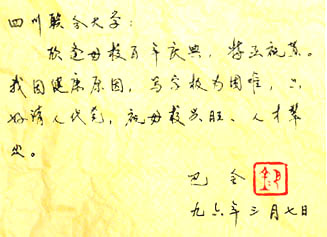 四川联合大学：
欣逢母校百年庆典，特致祝贺。
我因健康原因，写字极为困难，只
好请人代笔，祝母校兴旺、人才辈
出。
巴金
九六年三月七日